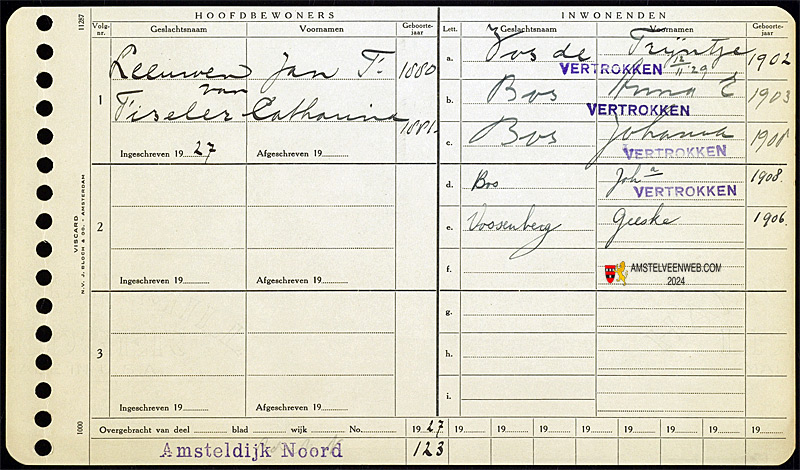 HOOFDBEWONERS
Volg-nr. Geslachtsnaam Voornamen Geboorte-jaar
1 Leeuwen Jan T. 1880
van
Tiseler Catharina 1881.
Ingeschreven 1927 Afgeschreven 19
2
Ingeschreven 19 Afgeschreven 19
3
Ingeschreven 19 Afgeschreven 19
INWONENDEN
Lett. Geslachtsnaam Voornamen Geboorte-jaar
a. Vos de Trijntje 1902
VERTROKKEN 12/11 '29
b. Bos Anna E 1903
VERTROKKEN
c. Bos Johanna 1908
VERTROKKEN
d. Bos Joh a 1908.
VERTROKKEN
e. Vossenberg Geeske 1906.
f.
AMSTELVEENWEB.COM
2024
g.
h.
i.
Overgebracht van deel blad wijk No. 1927 19 19 19 19 19 19 19 19
Amsteldijk Noord 123
11287
VISCARD
N.V. J. BLOCH & CO. - AMSTERDAM
1000